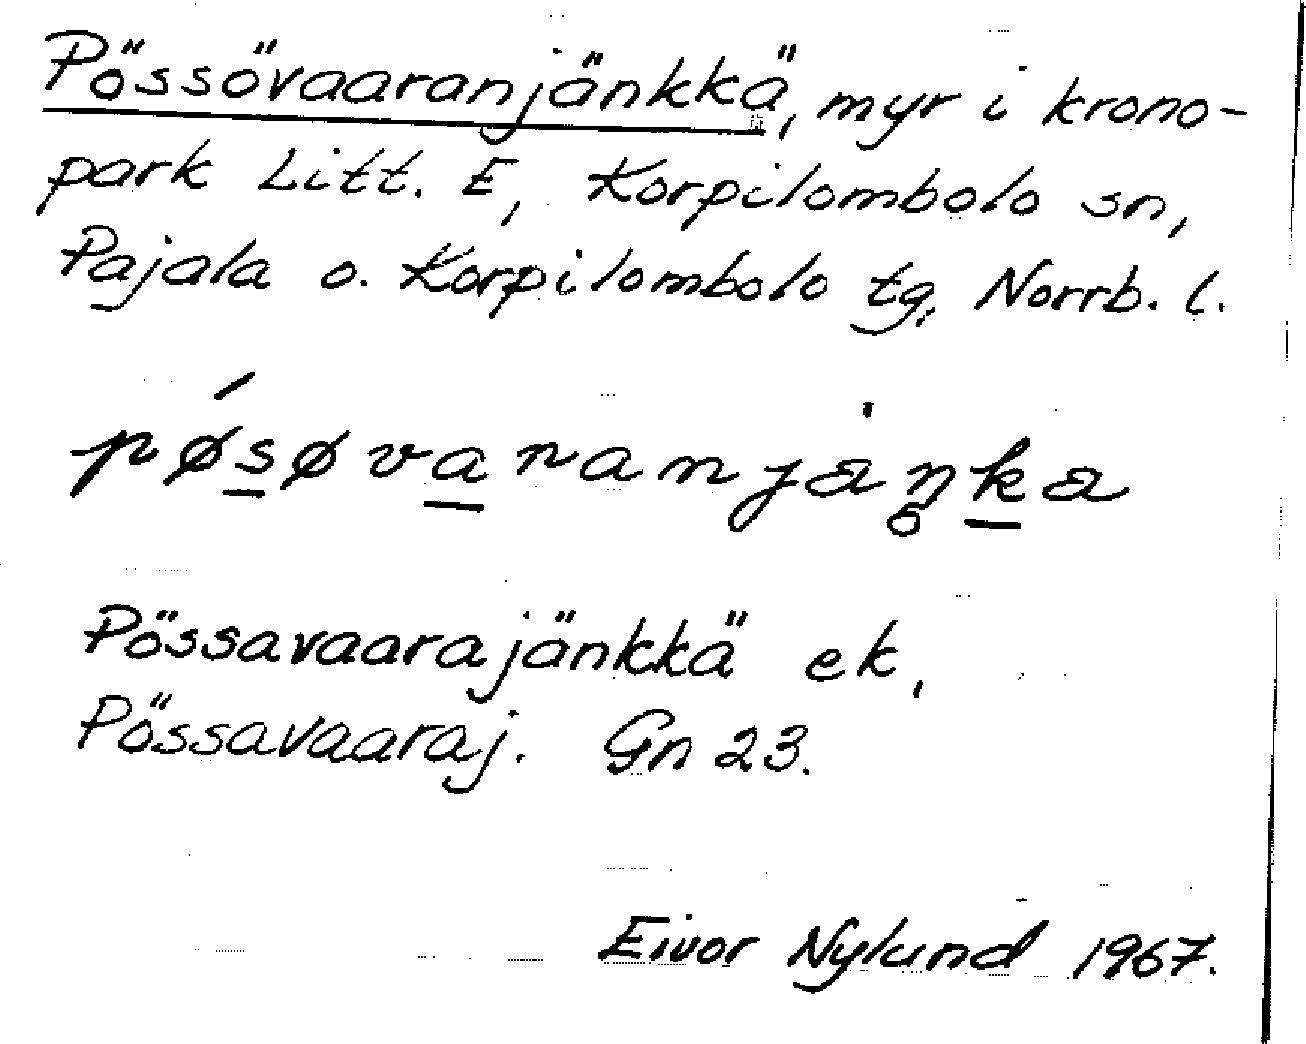 Pössövaaranjänkkä, myr i krono-
park Litt. E, Korpilombolo sn,
Pajala o. Korpilombolo tg, Norrb. l.
pǿs̲øva̲ranjäŋk̲ä
Pössavaarajänkkä ek,
Pössavaaraj. Gn 23.
Eivor Nylund 1967.